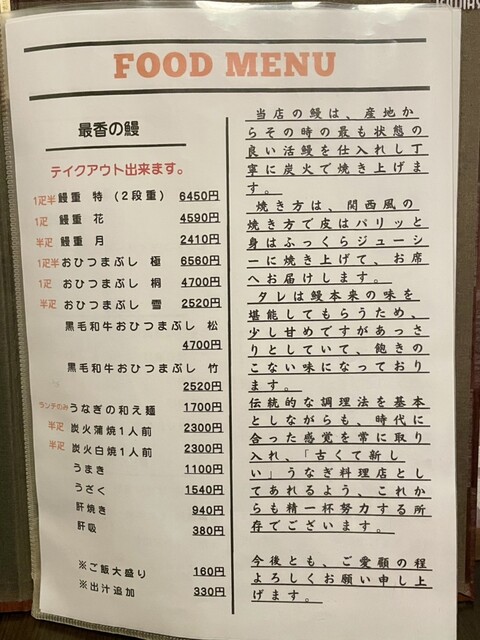 FOOD MENU
最香の鰻
テイクアウト出来ます。
1疋半 鰻重 特 (2段重) 6450円
1疋 鰻重 花 4590円
半疋 鰻重 月 2410円
1疋半 おひつまぶし 極 6560円
1疋 おひつまぶし 桐 4700円
半疋 おひつまぶし 雪 2520円
黒毛和牛おひつまぶし 松
4700円
黒毛和牛おひつまぶし 竹
2520円
ランチのみ うなぎの和え麺 1700円
半疋 炭火蒲焼1人前 2300円
半疋 炭火白焼1人前 2300円
うまき 1100円
うざく 1540円
肝焼き 940円
肝吸 380円
※ご飯大盛り 160円
※出汁追加 330円
当店の鰻は、産地か
らその時の最も状態の
良い活鰻を仕入れし丁
寧に炭火で焼き上げま
す。
焼き方は、関西風の
焼き方で皮はパリッと
身はふっくらジューシ
ーに焼き上げて、お席
へお届けします。
タレは鰻本来の味を
堪能してもらうため、
少し甘めですがあっさ
りとしていて、飽きの
こない味になっており
ます。
伝統的な調理法を基本
としながらも、時代に
合った感覚を常に取り
入れ、「古くて新し
い」うなぎ料理店とし
てあれるよう、これか
らも精一杯努力する所
存でございます。
今後とも、ご愛顧の程
よろしくお願い申し上
げます。